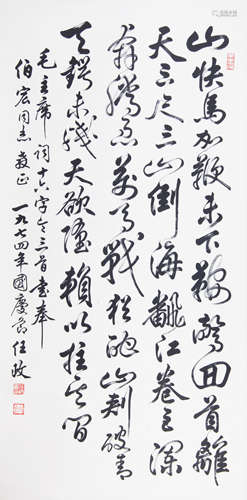 山快馬加鞭未下鞍驚回首離
天三尺三山倒海飜江卷巨瀾
奔騰急萬馬戰猶酣山刺破青
天鍔未殘天欲墮賴以拄其間
毛主席詞十六字令三首書奉
伯宏同志教正一九七四年國慶節任政